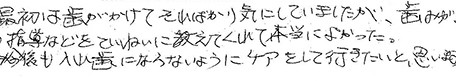 最初は歯がかけてそればかり気にしていましたが、歯みが
指導などをていねいに教えてくれて本当によかった。
今後も入れ歯にならないようにケアをして行きたいと思い